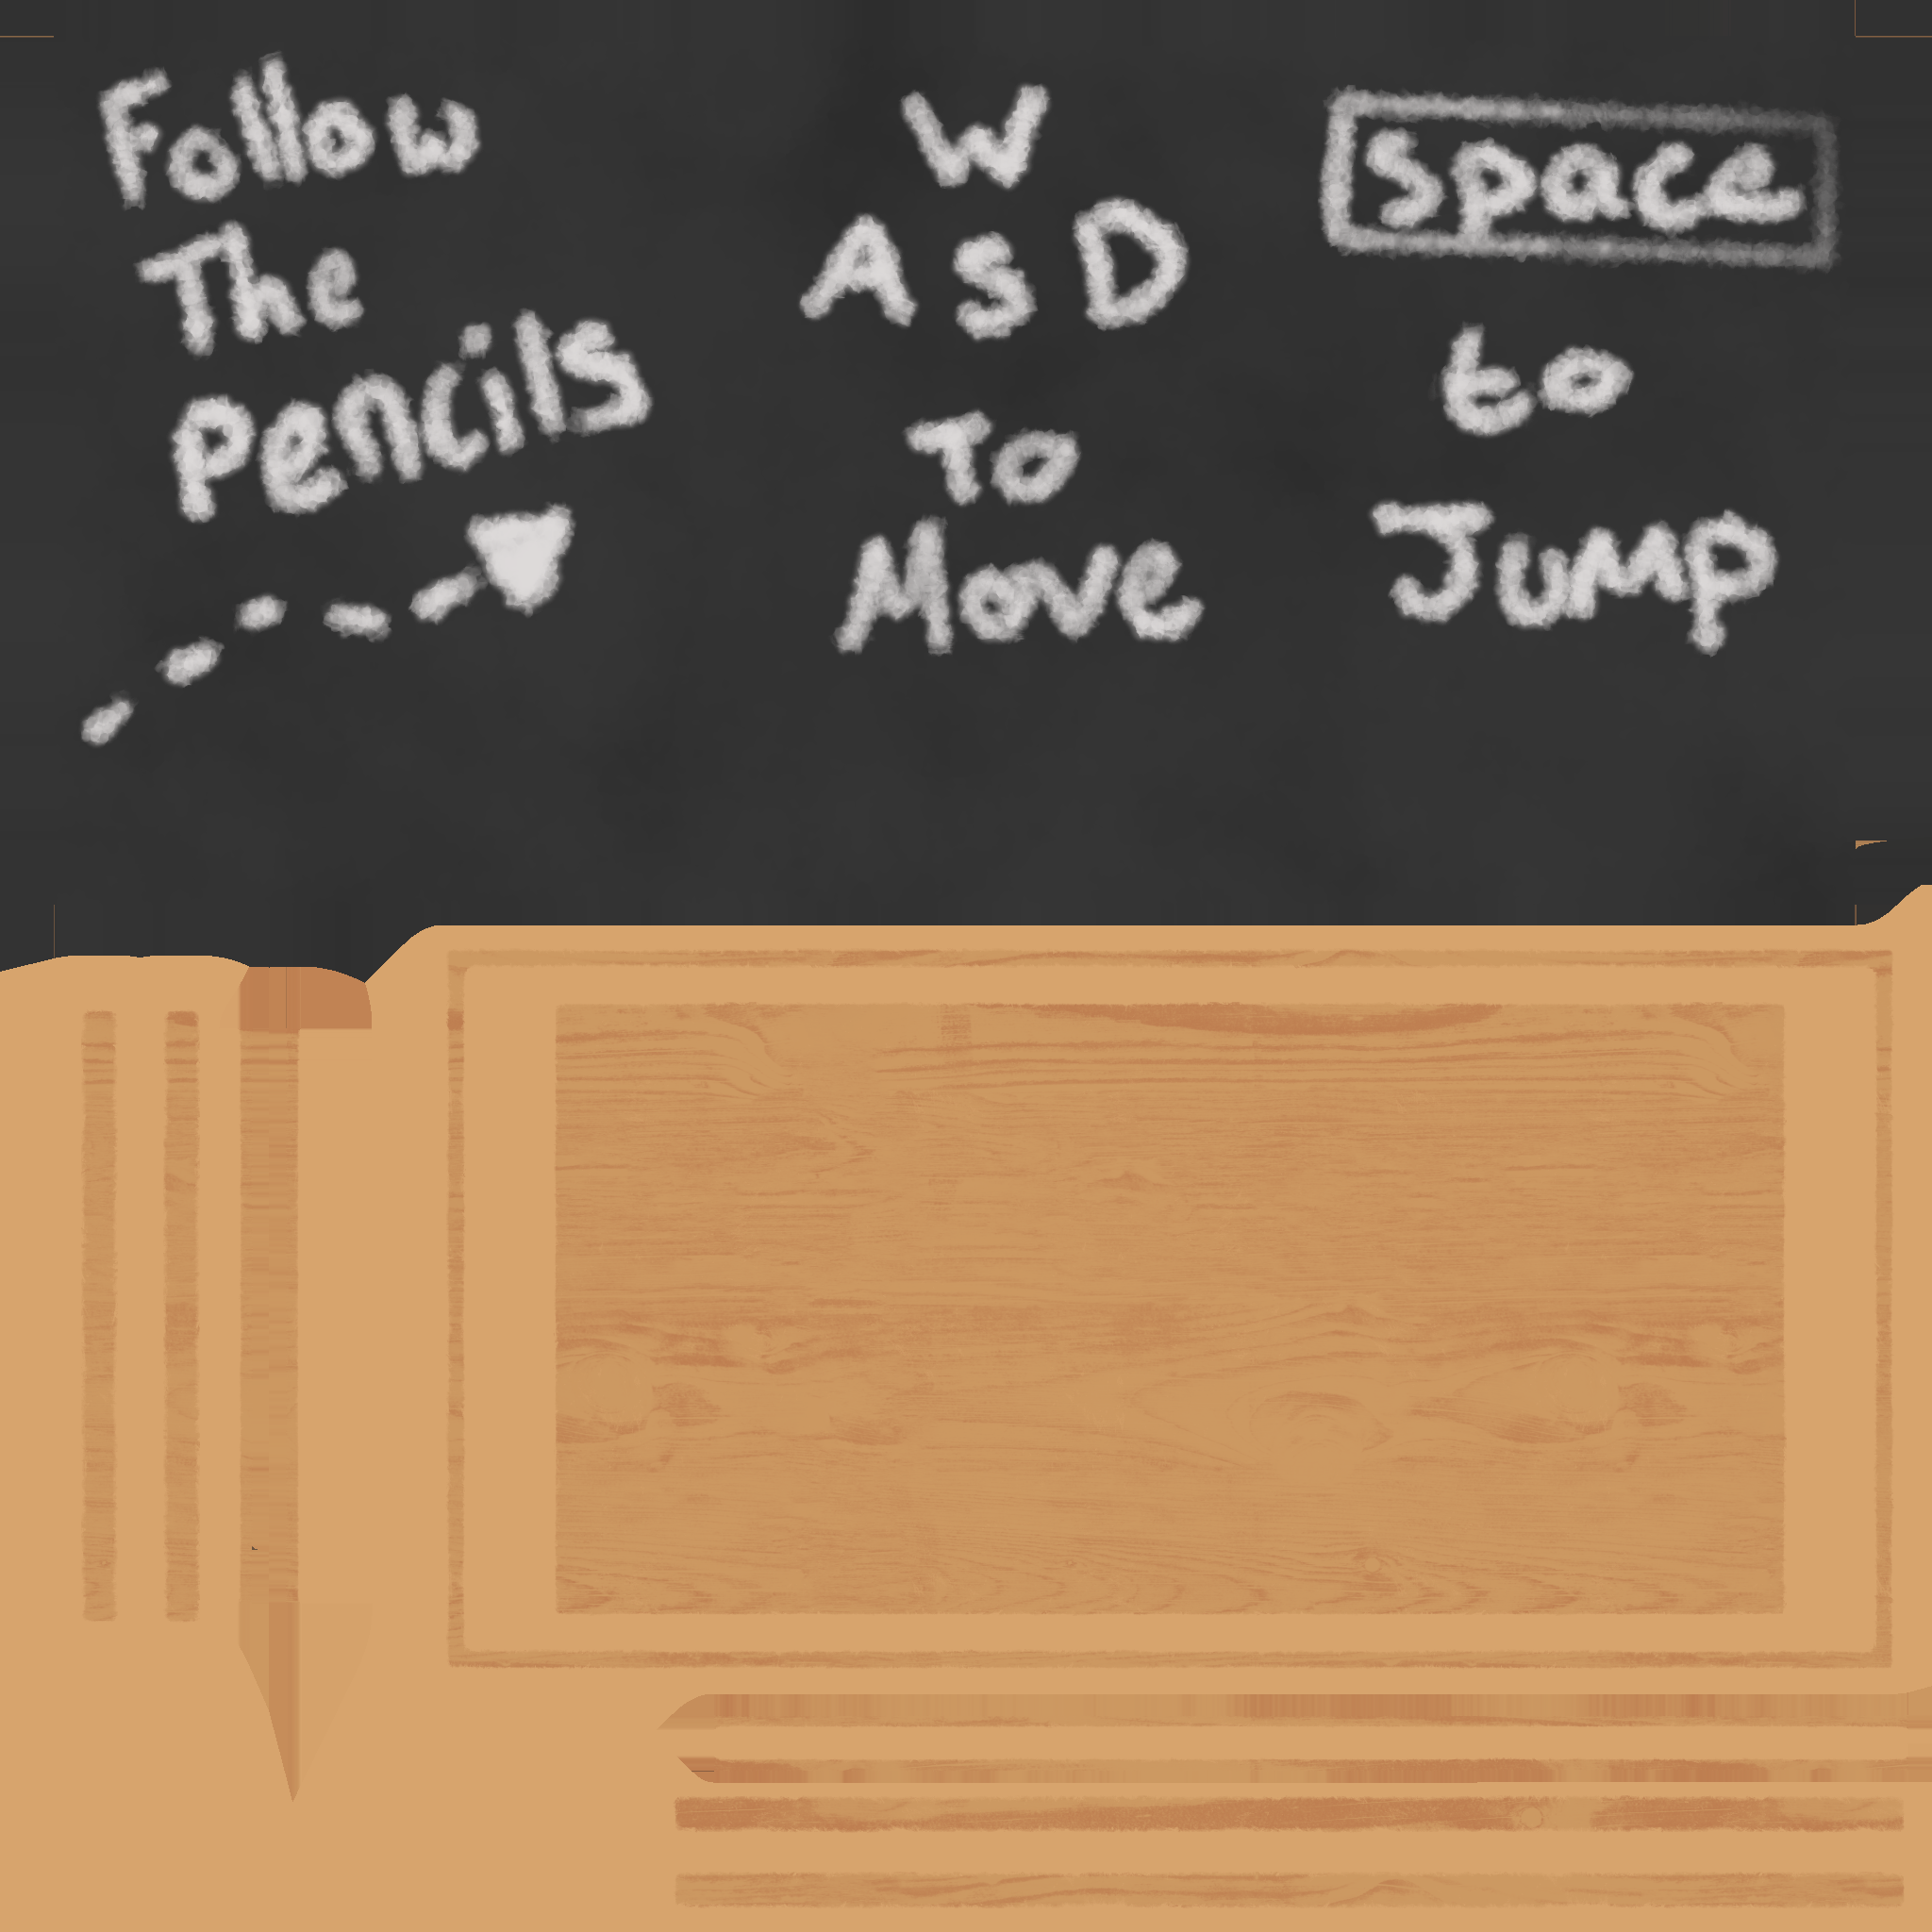 Follow
The
Pencils
W
A S D
To
Move
Space
to
Jump